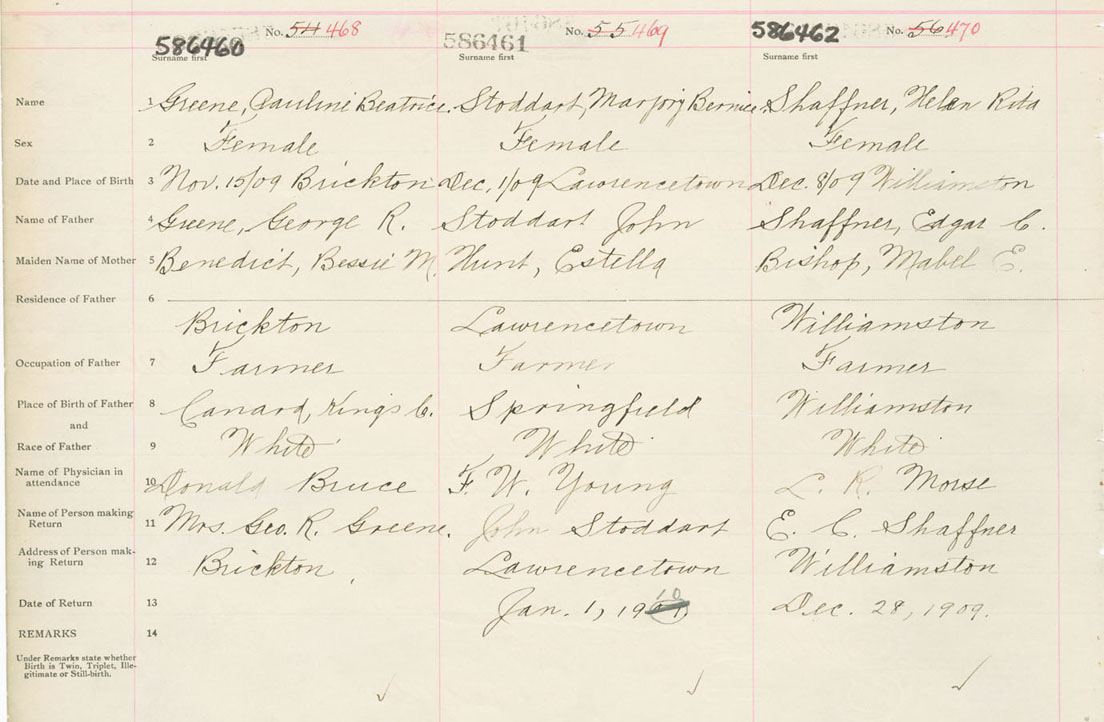 No. 54 468 No. 55 469 No. 56 470
586460 586461 586462
Surname first Surname first Surname first
Name 1 Greene, Pauline Beatrice. Stoddart, Marjory Bernice. Shaffner, Helen Rita
Sex 2 Female Female Female
Date and Place of Birth 3 Nov. 15/09 Brickton Dec. 1/09 Lawrencetown Dec. 8/09 Williamston
Name of Father 4 Greene, George R. Stoddart John Shaffner, Edgar C.
Maiden Name of Mother 5 Benedict, Bessie M. Hunt, Estella Bishop, Mabel E.
Residence of Father 6
Brickton Lawrencetown Williamston
Occupation of Father 7 Farmer Farmer Farmer
Place of Birth of Father 8 Canard, Kings C. Springfield Williamston
and
Race of Father 9 White White White
Name of Physician in
attendance 10 Donald Bruce F. W. Young L. R. Morse
Name of Person making
Return 11 Mrs. Geo. R. Greene. John Stoddart E. C. Shaffner
Address of Person mak-
ing Return 12 Brickton Lawrencetown Williamston
Date of Return 13 Jan. 1, 1910 Dec. 28, 1909.
REMARKS 14
Under Remarks state whether
Birth is Twin, Triplet, Ille-
gitimate or Still-birth.